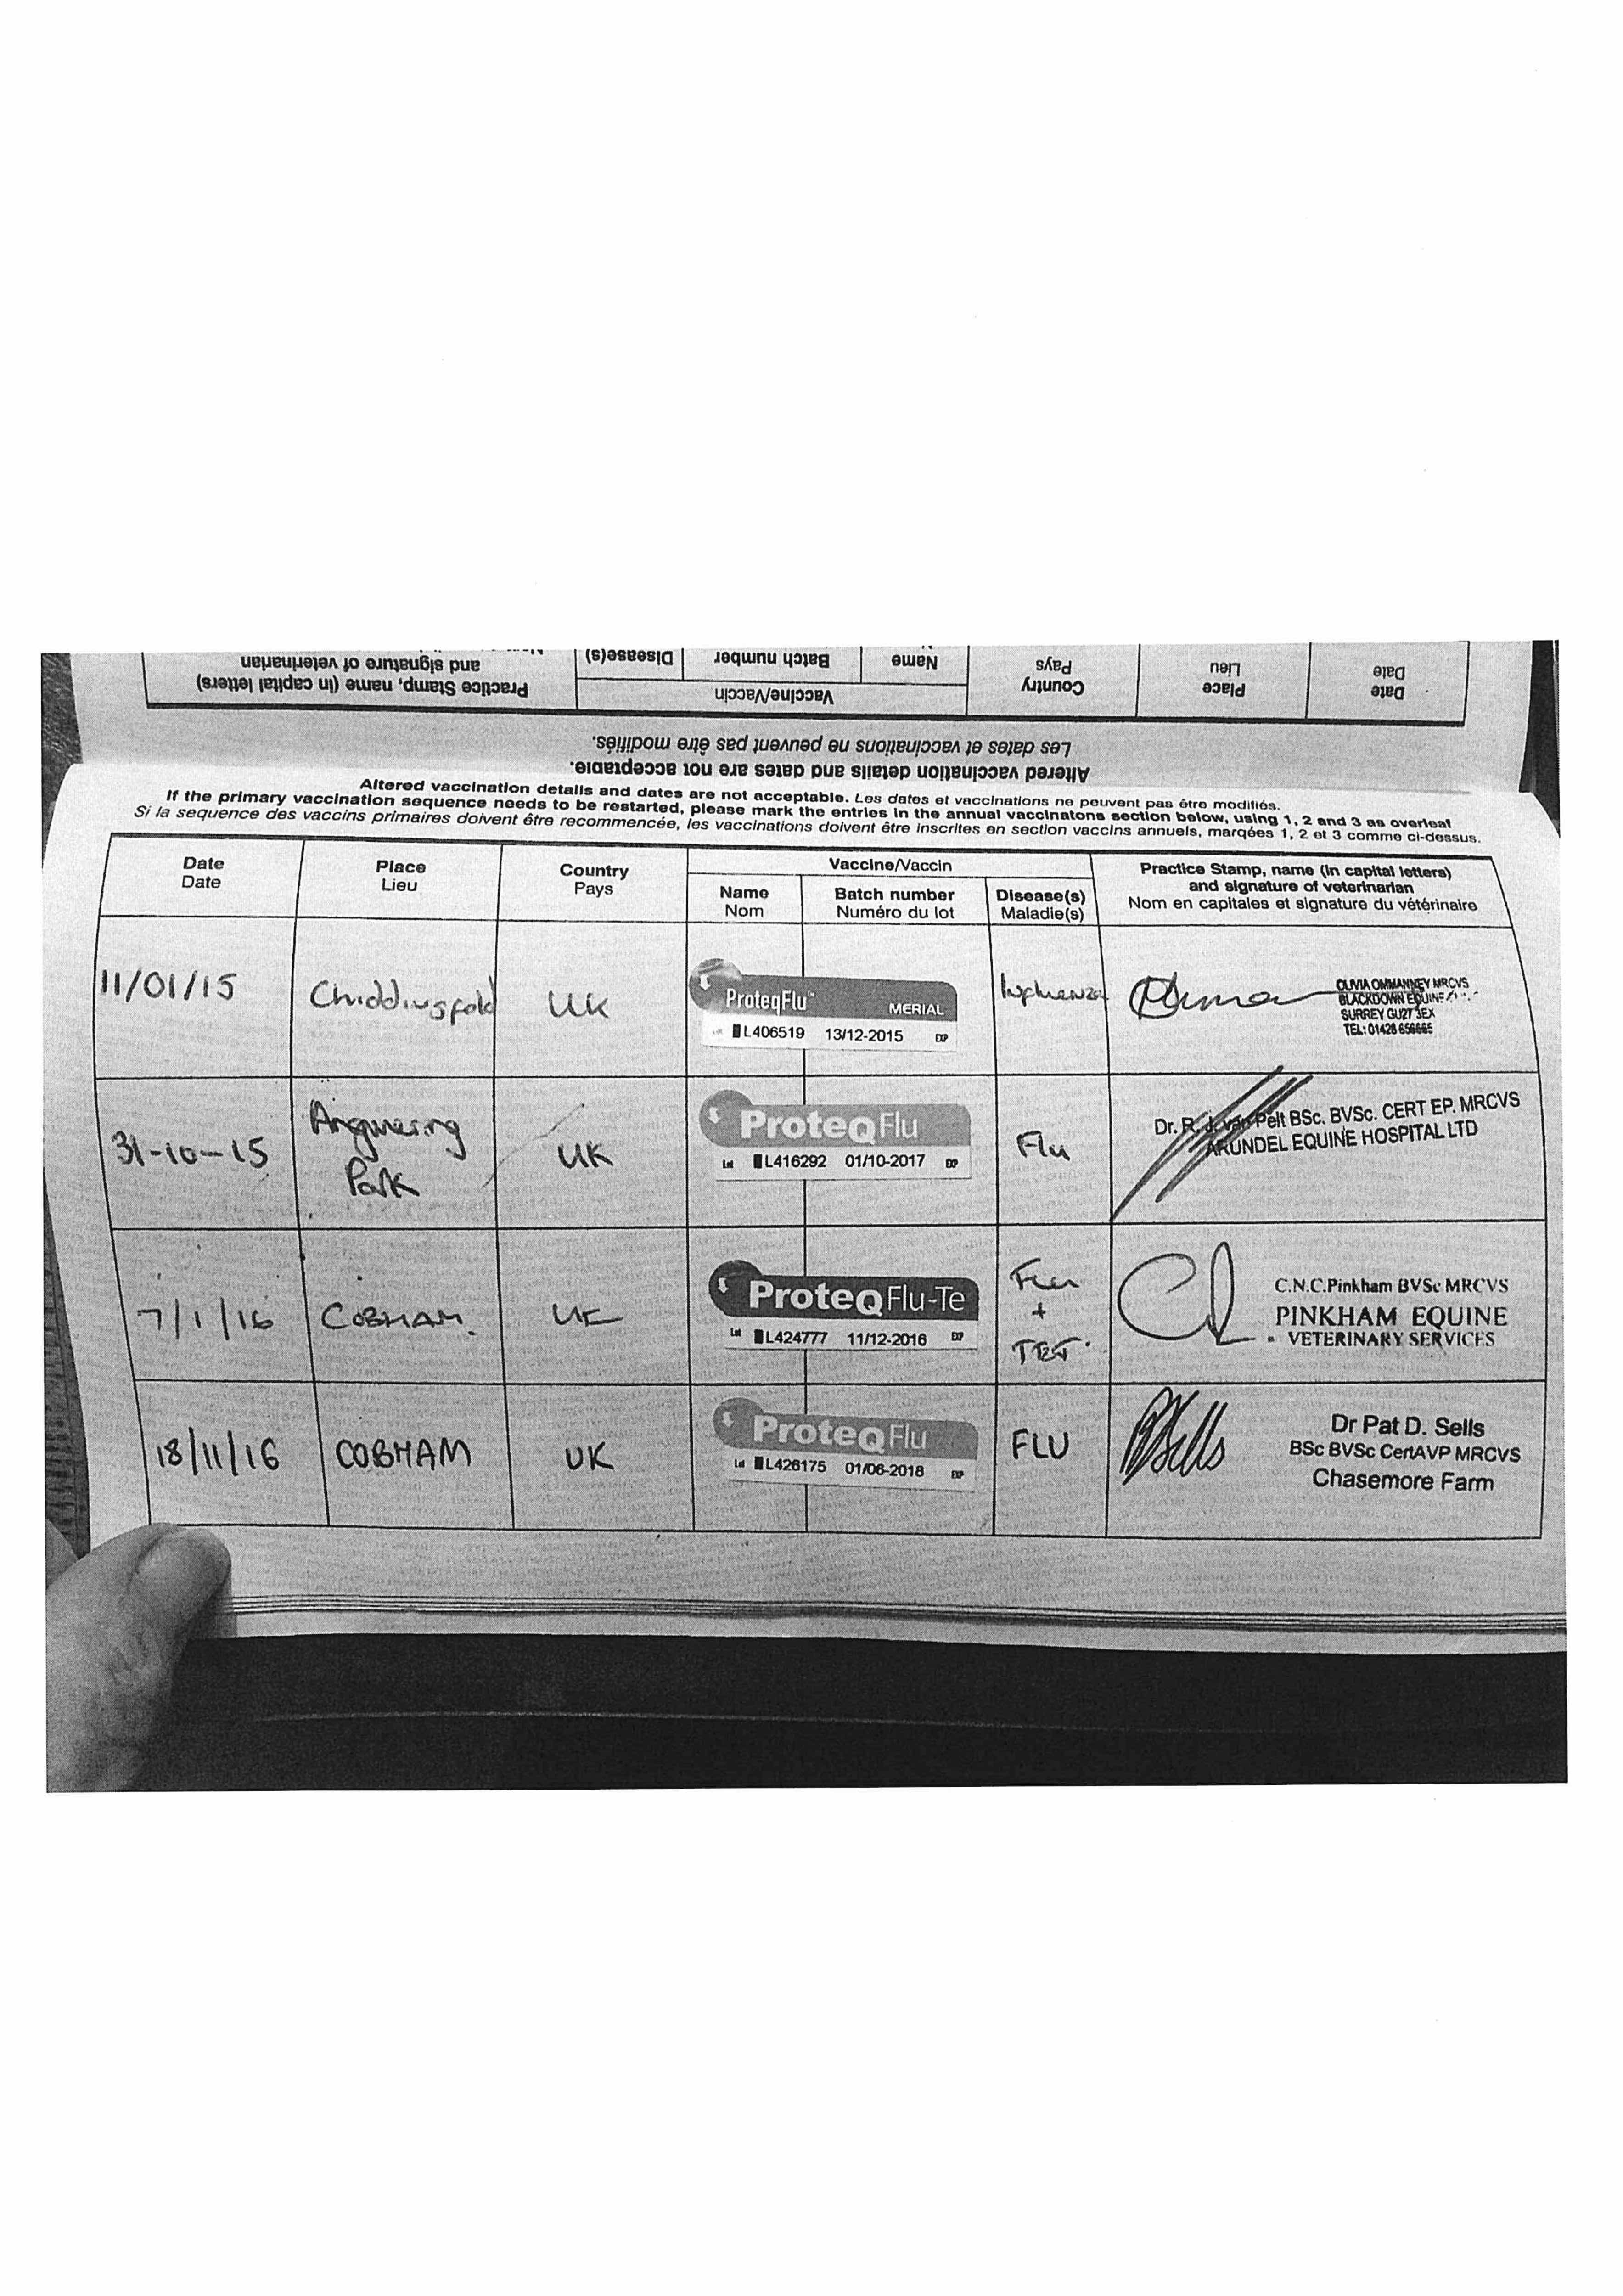 and signature of veterinarian
Practice Stamp, name (in capital letters)
Disease(s)
Batch number
Name
Vaccine/Vaccin
Pays
Country
Lieu
Place
Date
Date
Les dates et vaccinations ne peuvent pas être modifiés.
Altered vaccination details and dates are not acceptable.
Altered vaccination details and dates are not acceptable. Les dates et vaccinations ne peuvent pas être modifiés.
If the primary vaccination sequence needs to be restarted, please mark the entries in the annual vaccinatons section below, using 1, 2 and 3 as overleaf
Si la sequence des vaccins primaires doivent être recommencée, les vaccinations doivent être inscrites en section vaccins annuels, marqées 1, 2 et 3 comme ci-dessus.
Date
Date
Place
Lieu
Country
Pays
Vaccine/Vaccin
Name
Nom
Batch number
Numéro du lot
Disease(s)
Maladie(s)
Practice Stamp, name (in capital letters)
and signature of veterinarian
Nom en capitales et signature du vétérinaire
11/01/15
Chiddingfold
UK
ProteqFlu™ MERIAL
L406519 13/12-2015 EXP
Influenza
OLIVIA OMMANNEY MRCVS
BLACKDOWN EQUINE
SURREY GU27 3EX
TEL: 01428 656665
31-10-15
Angmering
Park
UK
ProteqFlu
Lot L416292 01/10-2017 EXP
Flu
Dr. R. J. van Pelt BSc. BVSc. CERT EP. MRCVS
ARUNDEL EQUINE HOSPITAL LTD
7/1/16
COBHAM.
UK
ProteqFlu-Te
Lot L424777 11/12-2016 EXP
Flu
+
TET.
C.N.C.Pinkham BVSc MRCVS
PINKHAM EQUINE
VETERINARY SERVICES
18/11/16
COBHAM
UK
ProteqFlu
Lot L426175 01/06-2018 EXP
FLU
PSells
Dr Pat D. Sells
BSc BVSc CertAVP MRCVS
Chasemore Farm